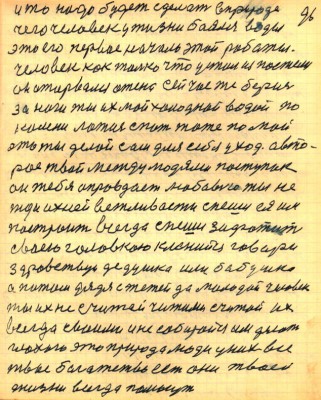 96
и то надо будет сделат в природе
чего человек у жизни боялся воды
это его первое начало этой работы.
человек как только что умылся постели
он оторвался от сна сейчас же берись
за ноги ты их мой холодной водой по
колени ложися спат тоже по мой
это ты делай сам для себя уход. авто-
рое твой между людями поступок
он тебя оправдает любавно ты не
жди ихней вежливости спеши сам
построит всегда спеши здоро
своею головкою кленится говори
здравствуй дедушка или бабушка
а потом дядя с тетей да молодой человек
ты их не считай чужими считай их
всегда своими и не собирайся им делат
плохого это природа люди у них все
твое богатство ест они твоей
жизни всегда помогут